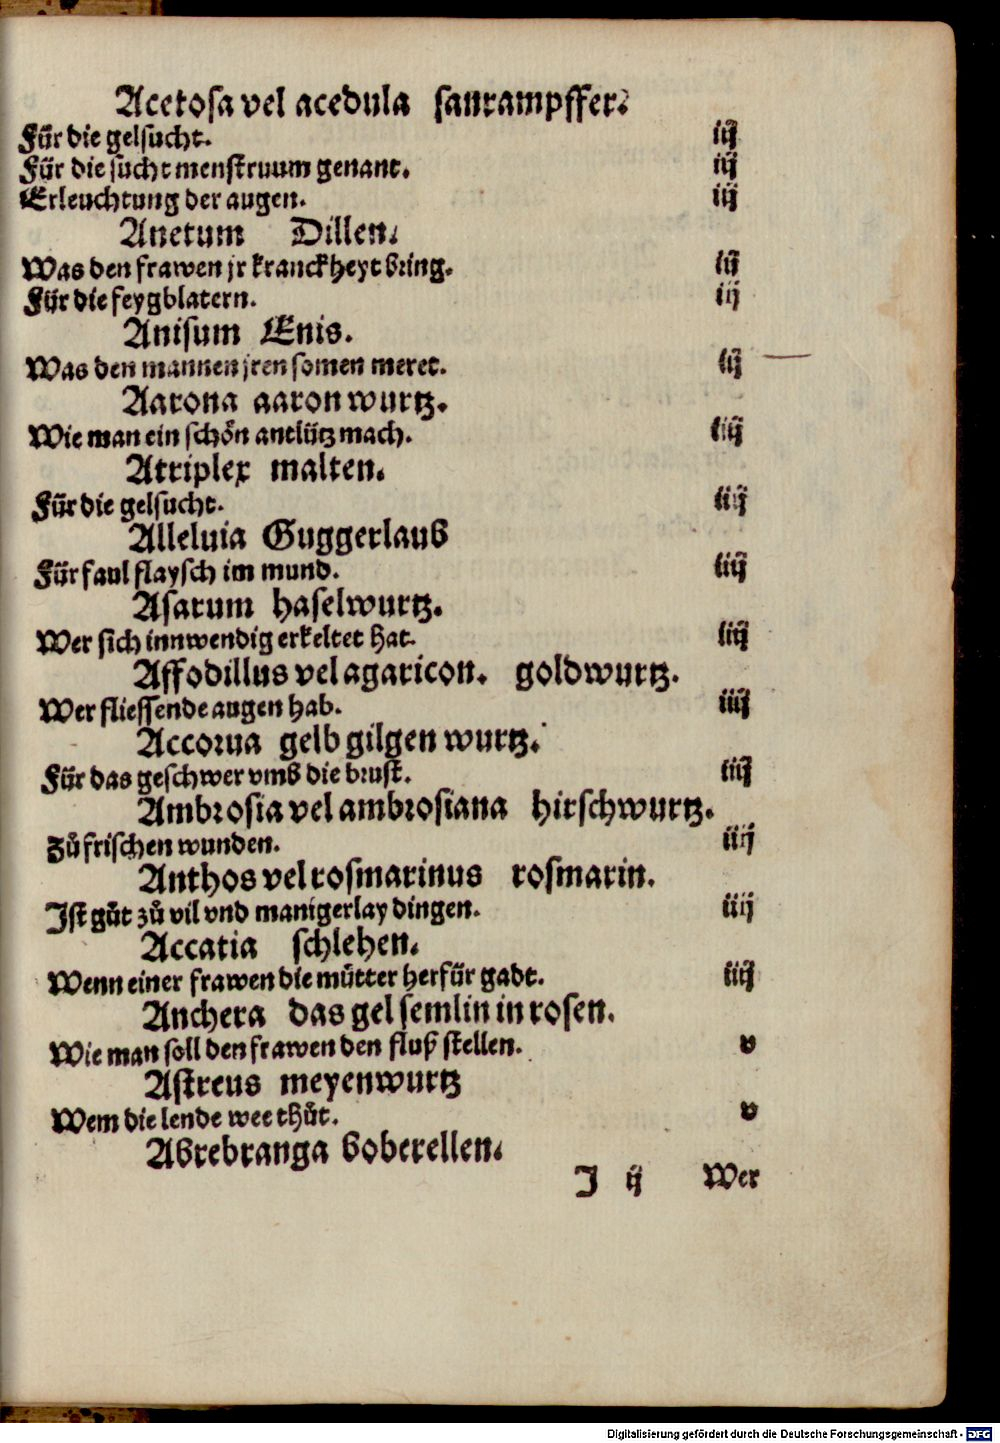 Acetosa vel acedula saurampffer.
Für die gelsucht. iij
Für die sucht menstruum genant. iij
Erleuchtung der augen. iij
Anetum Dillen.
Was den frawen jr kranckheyt bring. iij
Für die feygblatern. iij
Anisum Enis.
Was den mannen jren somen meret. iij
Aarona aaron wurtz.
Wie man ein schön antlütz mach. iiij
Atriplex malten.
Für die gelsucht. iiij
Alleluia Guggerlaub
Für faul flaysch im mund. iiij
Asarum haselwurtz.
Wer sich innwendig erkeltet hat. iiij
Affodillus vel agaricon. goldwurtz.
Wer fliessende augen hab. iiij
Accorua gelb gilgen wurtz.
Für das geschwer vmb die brust. iiij
Ambrosia vel ambrosiana hirschwurtz.
Zů frischen wunden. iiij
Anthos vel rosmarinus rosmarin.
Ist gůt zů vil vnd manigerlay dingen. iiij
Accatia schlehen.
Wenn einer frawen die můtter herfür gadt. iiij
Anchera das gel semlin in rosen.
Wie man soll den frawen den fluß stellen. v
Astreus meyenwurtz
Wem die lende wee thůt. v
Abrebranga boberellen.
I ij Wer
Digitalisierung gefördert durch die Deutsche Forschungsgemeinschaft - DFG